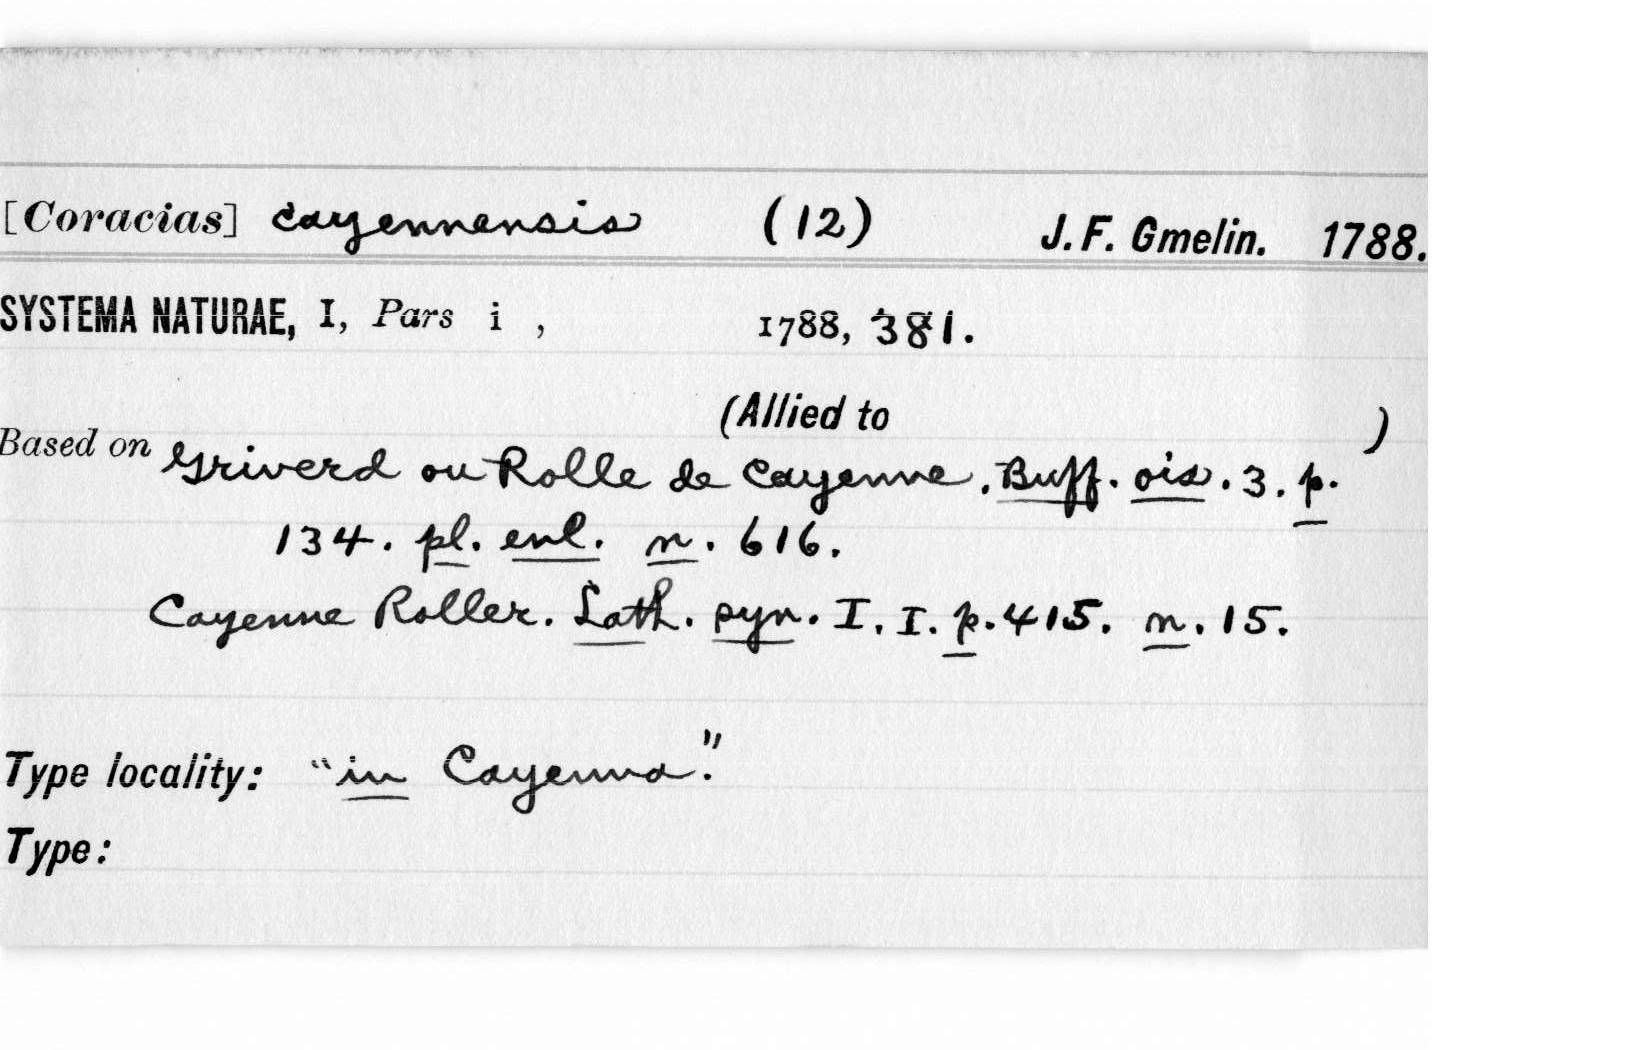 [Coracias] cayennensis (12) J. F. Gmelin. 1788.
SYSTEMA NATURAE, I, Pars i , 1788, 381.
(Allied to )
Based on Griverd ou Rolle de Cayenne. Buff. ois. 3. p.
134. pl. enl. n. 616.
Cayenne Roller. Lath. syn. I. I. p. 415. n. 15.
Type locality: "in Cayenna."
Type: